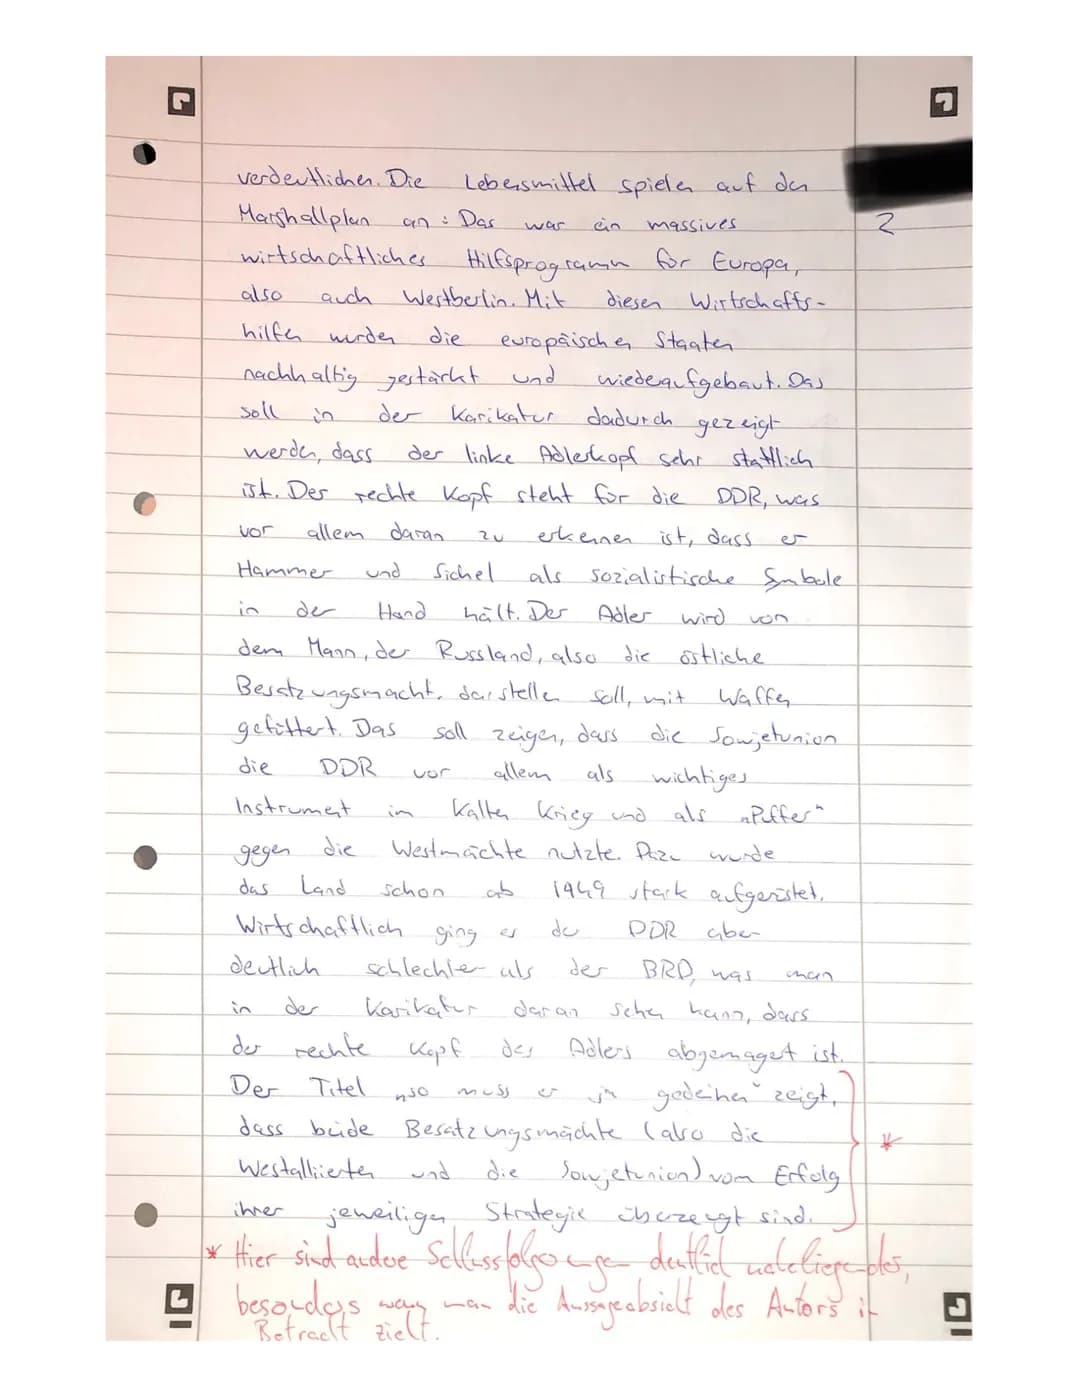 verdeutlichen. Die Lebensmittel spielen auf den
Marshallplan an: Das war ein massives
2
wirtschaftliches Hilfsprogramm für Europa,
also auch Westberlin. Mit diesen Wirtschafts-
hilfen wurden die europäischen Staaten
nachhaltig gestärkt und wiederaufgebaut. Das
soll in der Karikatur dadurch gezeigt
werden, dass der linke Adlerkopf sehr stattlich
ist. Der rechte Kopf steht für die DDR, was
vor allem daran zu erkennen ist, dass er
Hammer und Sichel als sozialistische Symbole
in der Hand hält. Der Adler wird von
dem Mann, der Russland, also die östliche
Besatzungsmacht, darstellen soll, mit Waffen
gefüttert. Das soll zeigen, dass die Sowjetunion
die DDR vor allem als wichtiges
Instrument im Kalten Krieg und als „Puffer“
gegen die Westmächte nutzte. Dazu wurde
das Land schon ab 1949 stark aufgerüstet.
Wirtschaftlich ging es der DDR aber
deutlich schlechter als der BRD, was man
in der Karikatur daran sehen kann, dass
der rechte Kopf des Adlers abgemagert ist.
Der Titel „so muss er ja gedeihen“ zeigt,
dass beide Besatzungsmächte (also die
Westalliierten und die Sowjetunion) vom Erfolg
ihrer jeweiligen Strategie überzeugt sind.
* Hier sind andere Schlussfolgerungen deutlich naheliegender,
besonders wenn man die Aussageabsicht des Autors in
Betracht zieht.